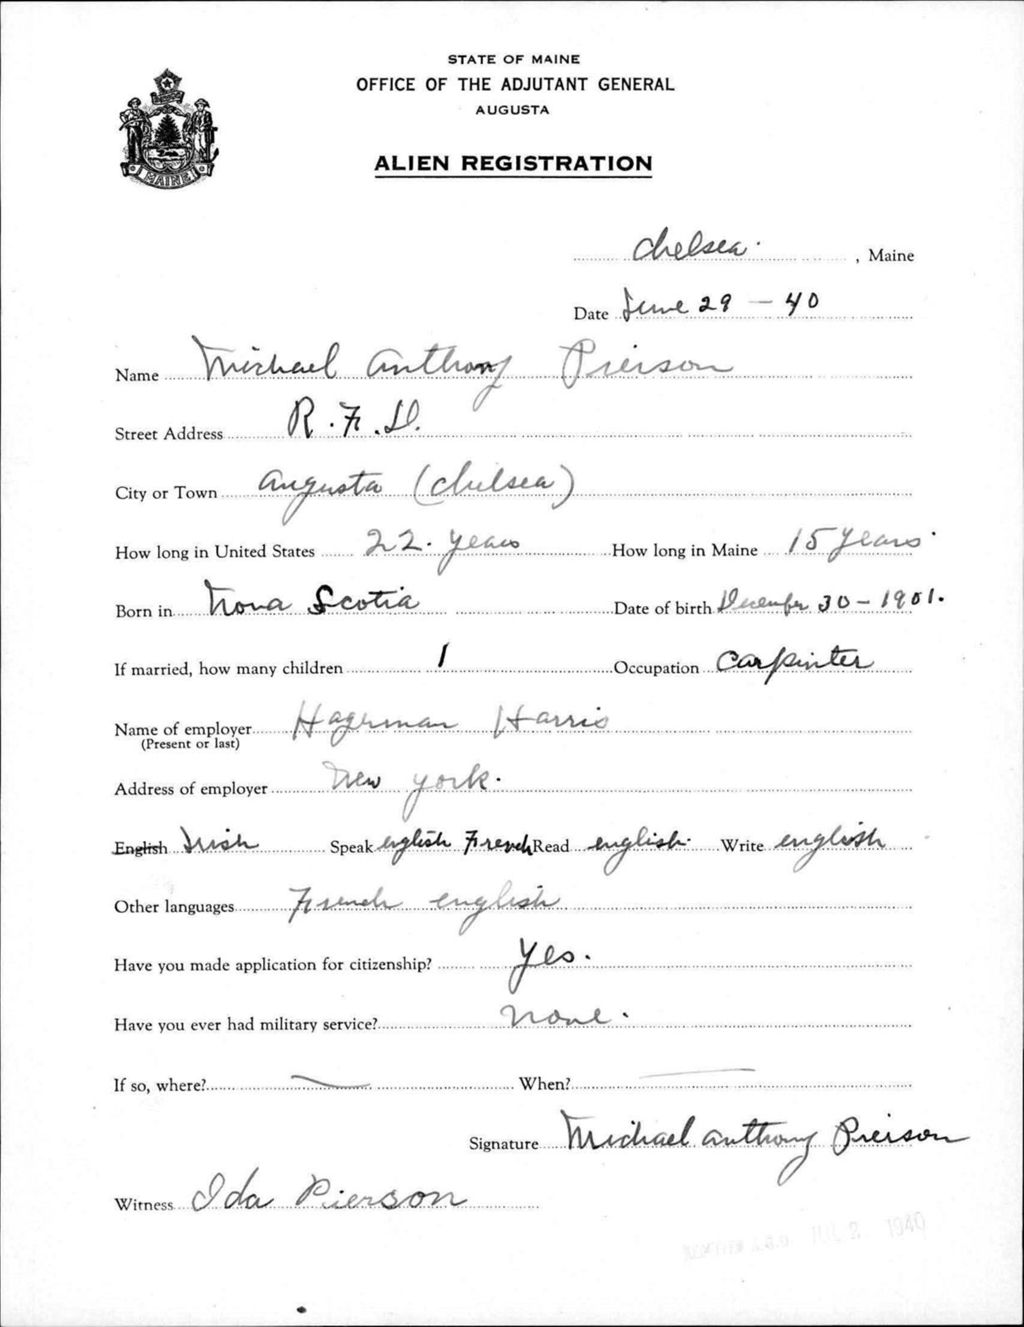 STATE OF MAINE
OFFICE OF THE ADJUTANT GENERAL
AUGUSTA
ALIEN REGISTRATION
MAINE
Chelsea. , Maine
Date June 29 - 40
Name Michael Anthony Pierson
Street Address R.F.D.
City or Town Augusta (Chelsea)
How long in United States 22. years How long in Maine 15 years.
Born in Nova Scotia Date of birth December 30 - 1901.
If married, how many children 1 Occupation Carpinter
Name of employer Hagerman Harris
(Present or last)
Address of employer New York.
English Irish Speak english French Read english. Write english
Other languages French english
Have you made application for citizenship? Yes.
Have you ever had military service? none.
If so, where? — When? —
Signature Michael Anthony Pierson
Witness Ida Pierson
A.G.O. JUL 2 1940